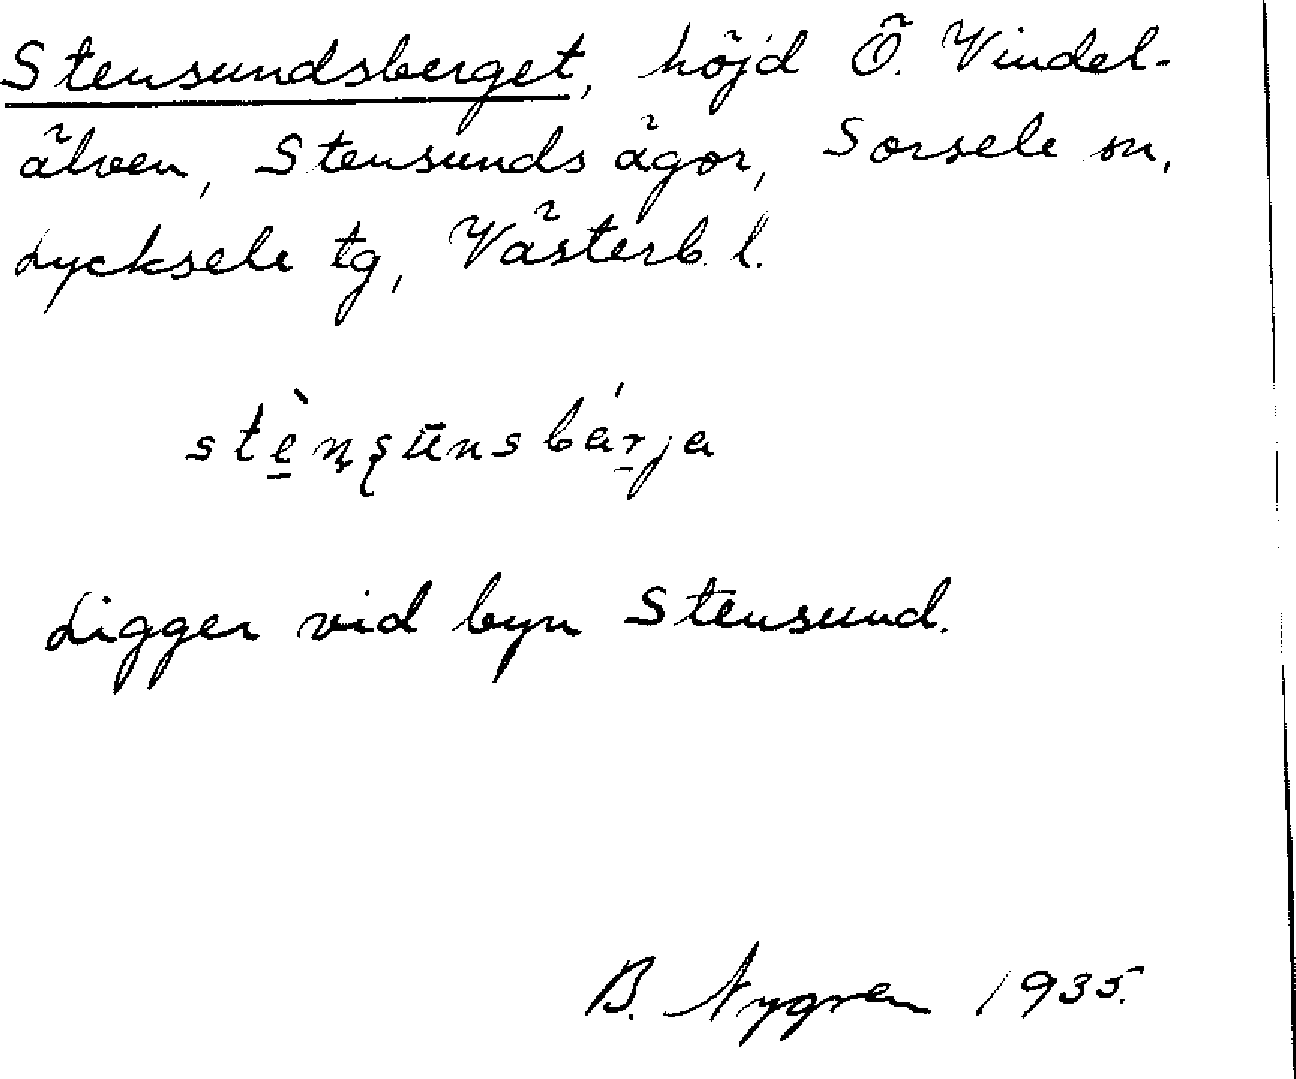 Stensundsberget, höjd Ö. Vindel-
älven, Stensunds ägor, Sorsele sn,
Lycksele tg, Västerb. l.
Ligger vid byn Stensund.
B. Nygren 1935.